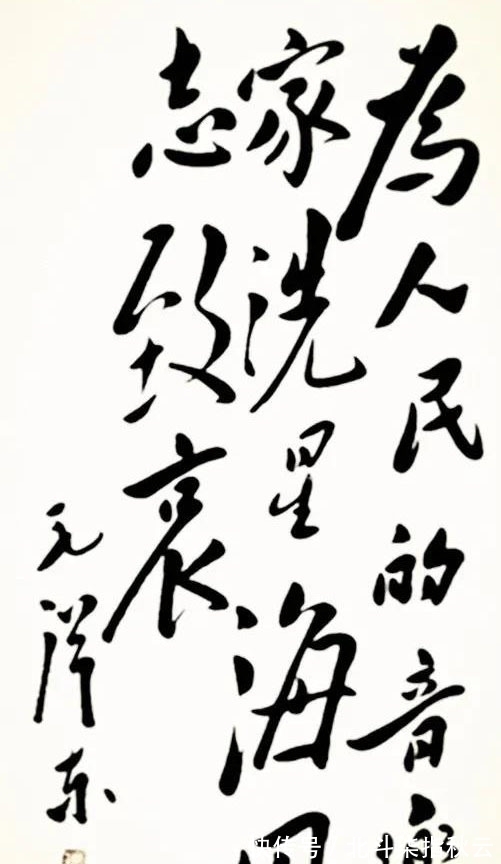 為人民的音
家冼星海同
志致哀
毛泽东
快传号